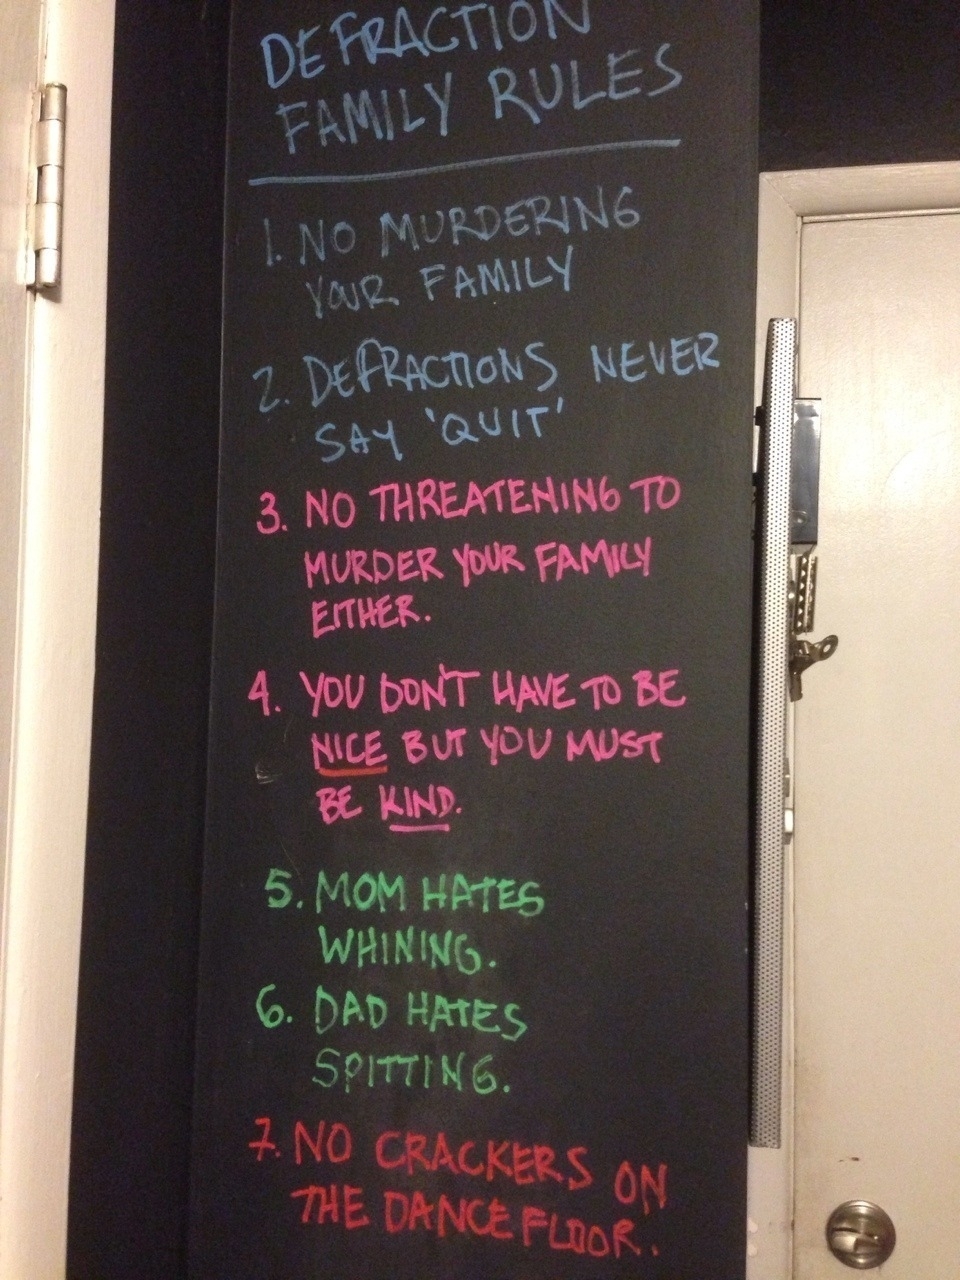 DEFRACTION
FAMILY RULES
1. NO MURDERING
YOUR FAMILY
2. DEFRACTIONS NEVER
SAY 'QUIT'
3. NO THREATENING TO
MURDER YOUR FAMILY
EITHER.
4. YOU DON'T HAVE TO BE
NICE BUT YOU MUST
BE KIND.
5. MOM HATES
WHINING.
6. DAD HATES
SPITTING.
7. NO CRACKERS ON
THE DANCE FLOOR.